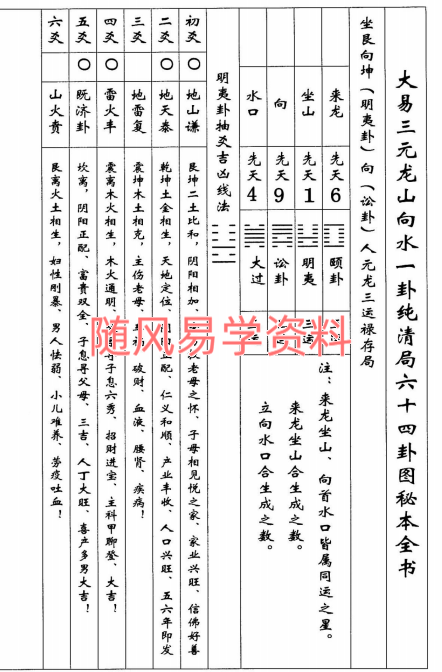 大易三元龙山向水一卦纯清局六十四卦图秘本全书
坐艮向坤（明夷卦）向（讼卦）人元龙三运禄存局
来龙 先天6 颐卦
坐山 先天1 明夷 三运
向 先天9 讼卦
水口 先天4 大过
注：来龙坐山、向首水口皆属同运之星。
来龙坐山合生成之数。
立向水口合生成之数。
明夷卦抽爻吉凶线法
初爻 〇 地山谦 艮坤二土比和，阴阳相加、老母之怀、子母相见悦之家、家业兴旺、信佛好善
二爻 〇 地天泰 乾坤土金相生，天地定位、正配、仁义和顺、产业丰收、人口兴旺、五六年即发
三爻 地雷复 震坤木土相克，主伤老母、破财、血液、腰肾、疾病！
四爻 〇 雷火丰 震离木火相生，木火通明、子息六秀、招财进宝、主科甲聊登、大吉！
五爻 〇 既济卦 坎离，阴阳正配、富贵双全、子息寻父母、三吉、人丁大旺、喜产多男大吉！
六爻 山火贲 艮离火土相生，妇性刚暴、男人怯弱、小儿难养、劳疫吐血！
随风易学资料